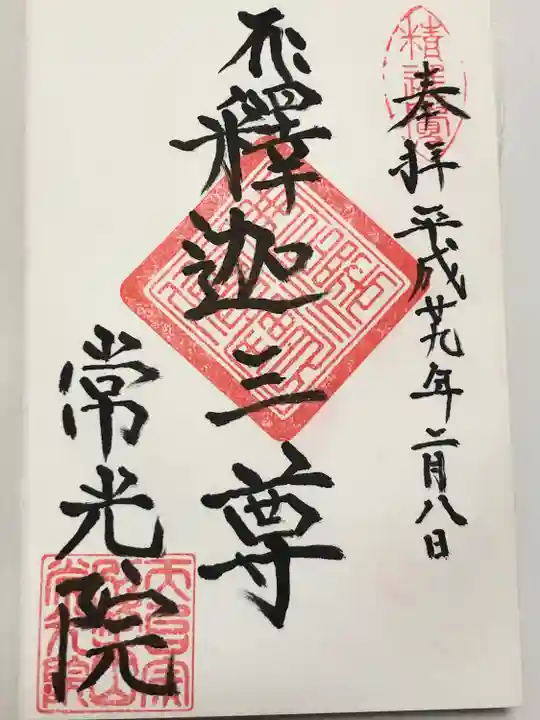 奉拝 平成廿九年二月八日
釋迦三尊
常光院